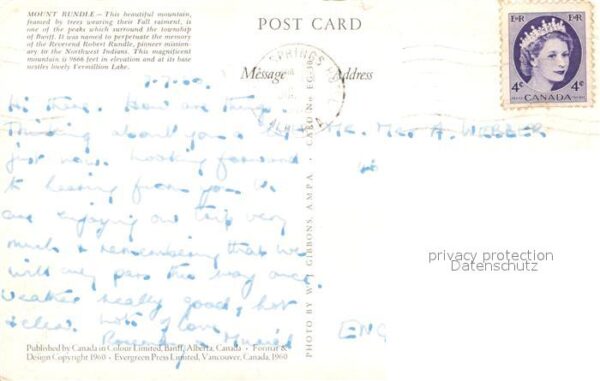 MOUNT RUNDLE—This beautiful mountain,
framed by trees wearing their Fall raiment, is
one of the peaks which surround the township
of Banff. It was named to perpetuate the memory
of the Reverend Robert Rundle, pioneer mission-
ary to the Northwest Indians. This magnificent
mountain is 9666 feet in elevation and at its base
nestles lovely Vermillion Lake.
POST CARD
Message
Address
SPRINGS
Hi there. How are things
Thinking about you
just now. Looking forward
to hearing from you. We
are enjoying our trip very
much & remembering that we
will only pass this way once.
Weather really good, hot
& clear. Lots of love
Rosemary & Muriel
Mr. Mrs A. WEBBER
ENG
CANADA
4¢
4¢
PHOTO BY W. J. GIBBONS, A.M.P.A.
CARD No.
privacy protection
Datenschutz
Published by Canada in Colour Limited, Banff, Alberta, Canada • Format &
Design Copyright 1960 • Evergreen Press Limited, Vancouver, Canada, 1960